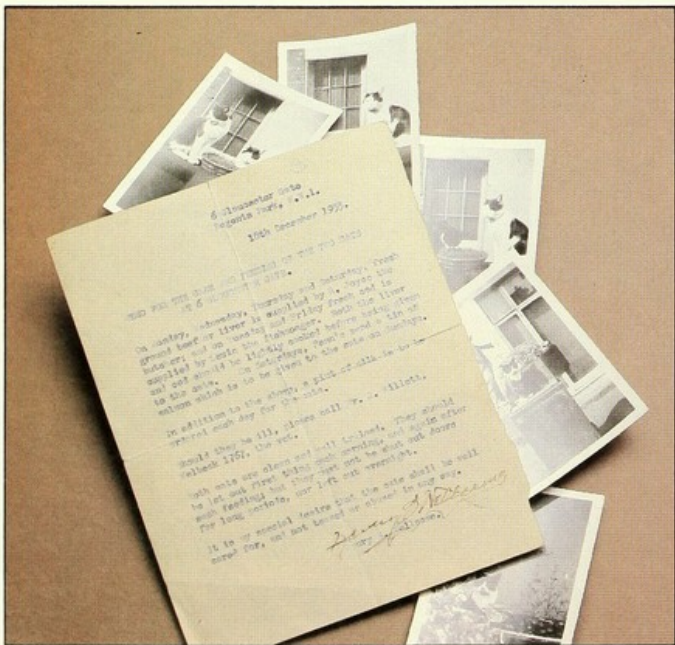 6 Gloucester Gate
Regents Park, N.W.1.
18th December 1955.
FOR THE CARE AND FEEDING OF THE TWO CATS
AT 6 GLOUCESTER GATE.
On Monday, Wednesday, Thursday and Saturday, fresh
ground beef or liver is supplied by the
butcher; and on Tuesday and Friday fresh cod is
supplied by the fishmonger. Both the liver
and cod should be lightly cooked before being given
to the cats. On Saturdays, send a tin of
salmon which is to be given to the cats on Sundays.
In addition to the above, a pint of milk is to be
ordered each day for the cats.
Should they be ill, please call Mr.
Welbeck the vet.
Both cats are clean and well trained. They should
be let out first thing each morning, and again after
each feeding; but they must not be shut out doors
for long periods, nor left out overnight.
It is my special desire that the cats shall be well
cared for, and not teased or abused in any way.